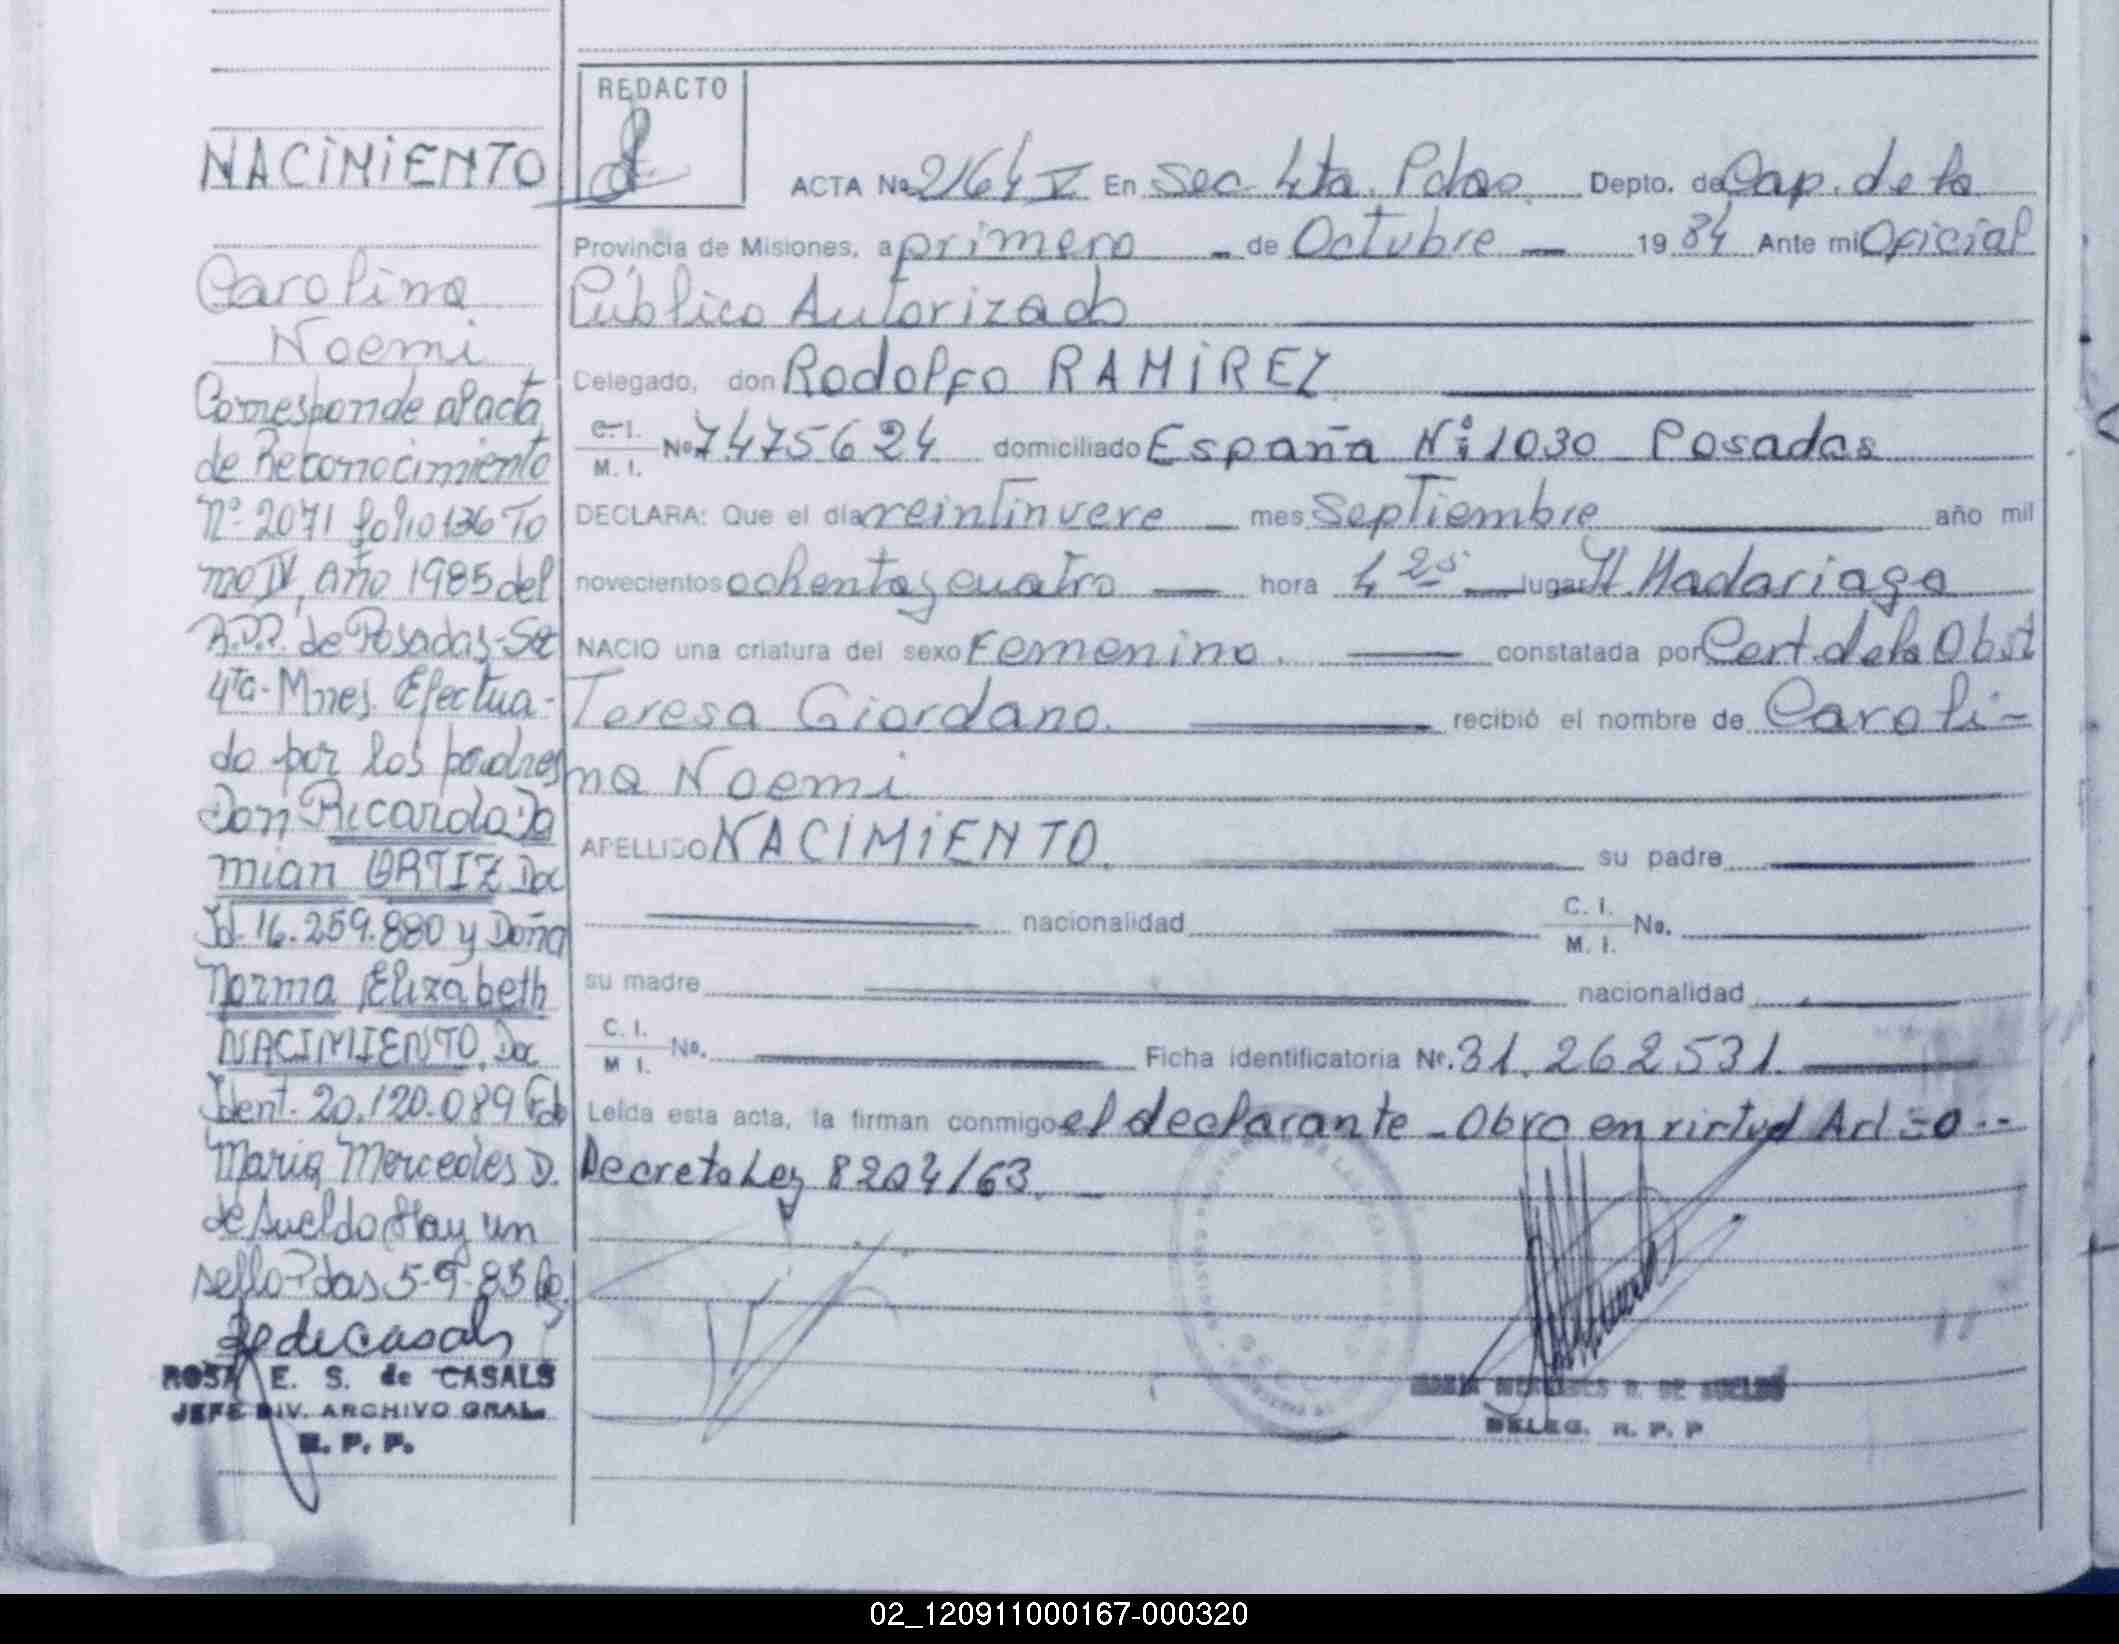 NACIMIENTO
Carolina
Noemi
Corresponde al acta
de Reconocimiento
Nº 2071 folio 136 To
mo IV, Año 1985 del
R.P.P. de Posadas-Sec
4ta- Mnes. Efectua-
do por los padres
Don Ricardo Da
mian ORTIZ Doc
Id. 16.259.880 y Doña
Norma Elizabeth
NACIMIENTO. Doc
Ident. 20.120.089 Fdo
Maria Mercedes D.
de Sueldo Hay un
sello-Pdas 5-9-85
R de Casals
ROSA E. S. de CASALS
JEFE DIV. ARCHIVO GRAL.
R. P. P.
REDACTO
ACTA No 2164 V En Sec. 4ta. Pdas. Depto. de Cap. de la
Provincia de Misiones, a primero - de Octubre — 1984 Ante mi Oficial
Público Autorizado
Delegado, don Rodolfo RAMIREZ
C. I.
M. I.
Nº 7475624 domiciliado España Nº 1030 Posadas
DECLARA: Que el día veintinueve — mes Septiembre año mil
novecientos ochenta y cuatro — hora 4 25 — lugar H. Madariaga
NACIO una criatura del sexo Femenino. — constatada por Cert. de la Obst
Teresa Giordano. recibió el nombre de Caroli-
na Noemi
APELLIDO NACIMIENTO. su padre
nacionalidad C. I.
M. I. No.
su madre nacionalidad
C. I.
M I. No. Ficha identificatoria Nº. 31.262531.
Leída esta acta, la firman conmigo el declarante - Obra en virtud Art
Decreto Ley 8204/63. —
MARIA MERCEDES D. DE SUELDO
DELEG. R. P. P
02_120911000167-000320